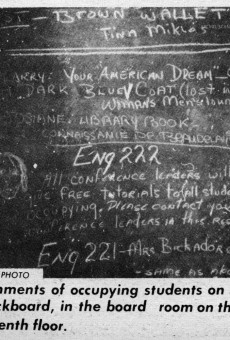 – BROWN WALLET
TINA MIKLOS
YOUR "AMERICAN DREAM" –
DARK BLUE COAT (lost in
WOMAN'S
LIBRARY BOOK
CONNAISSANCE DE BEAUDELAIRE
Eng 222
ALL CONFERENCE leaders will
FREE tutorials to all stude
OCCUPYING. Please contact you
leaders in this re
Eng 221 – Mrs
– SAME AS
PHOTO
ments of occupying students on
ckboard, in the board room on th
enth floor.